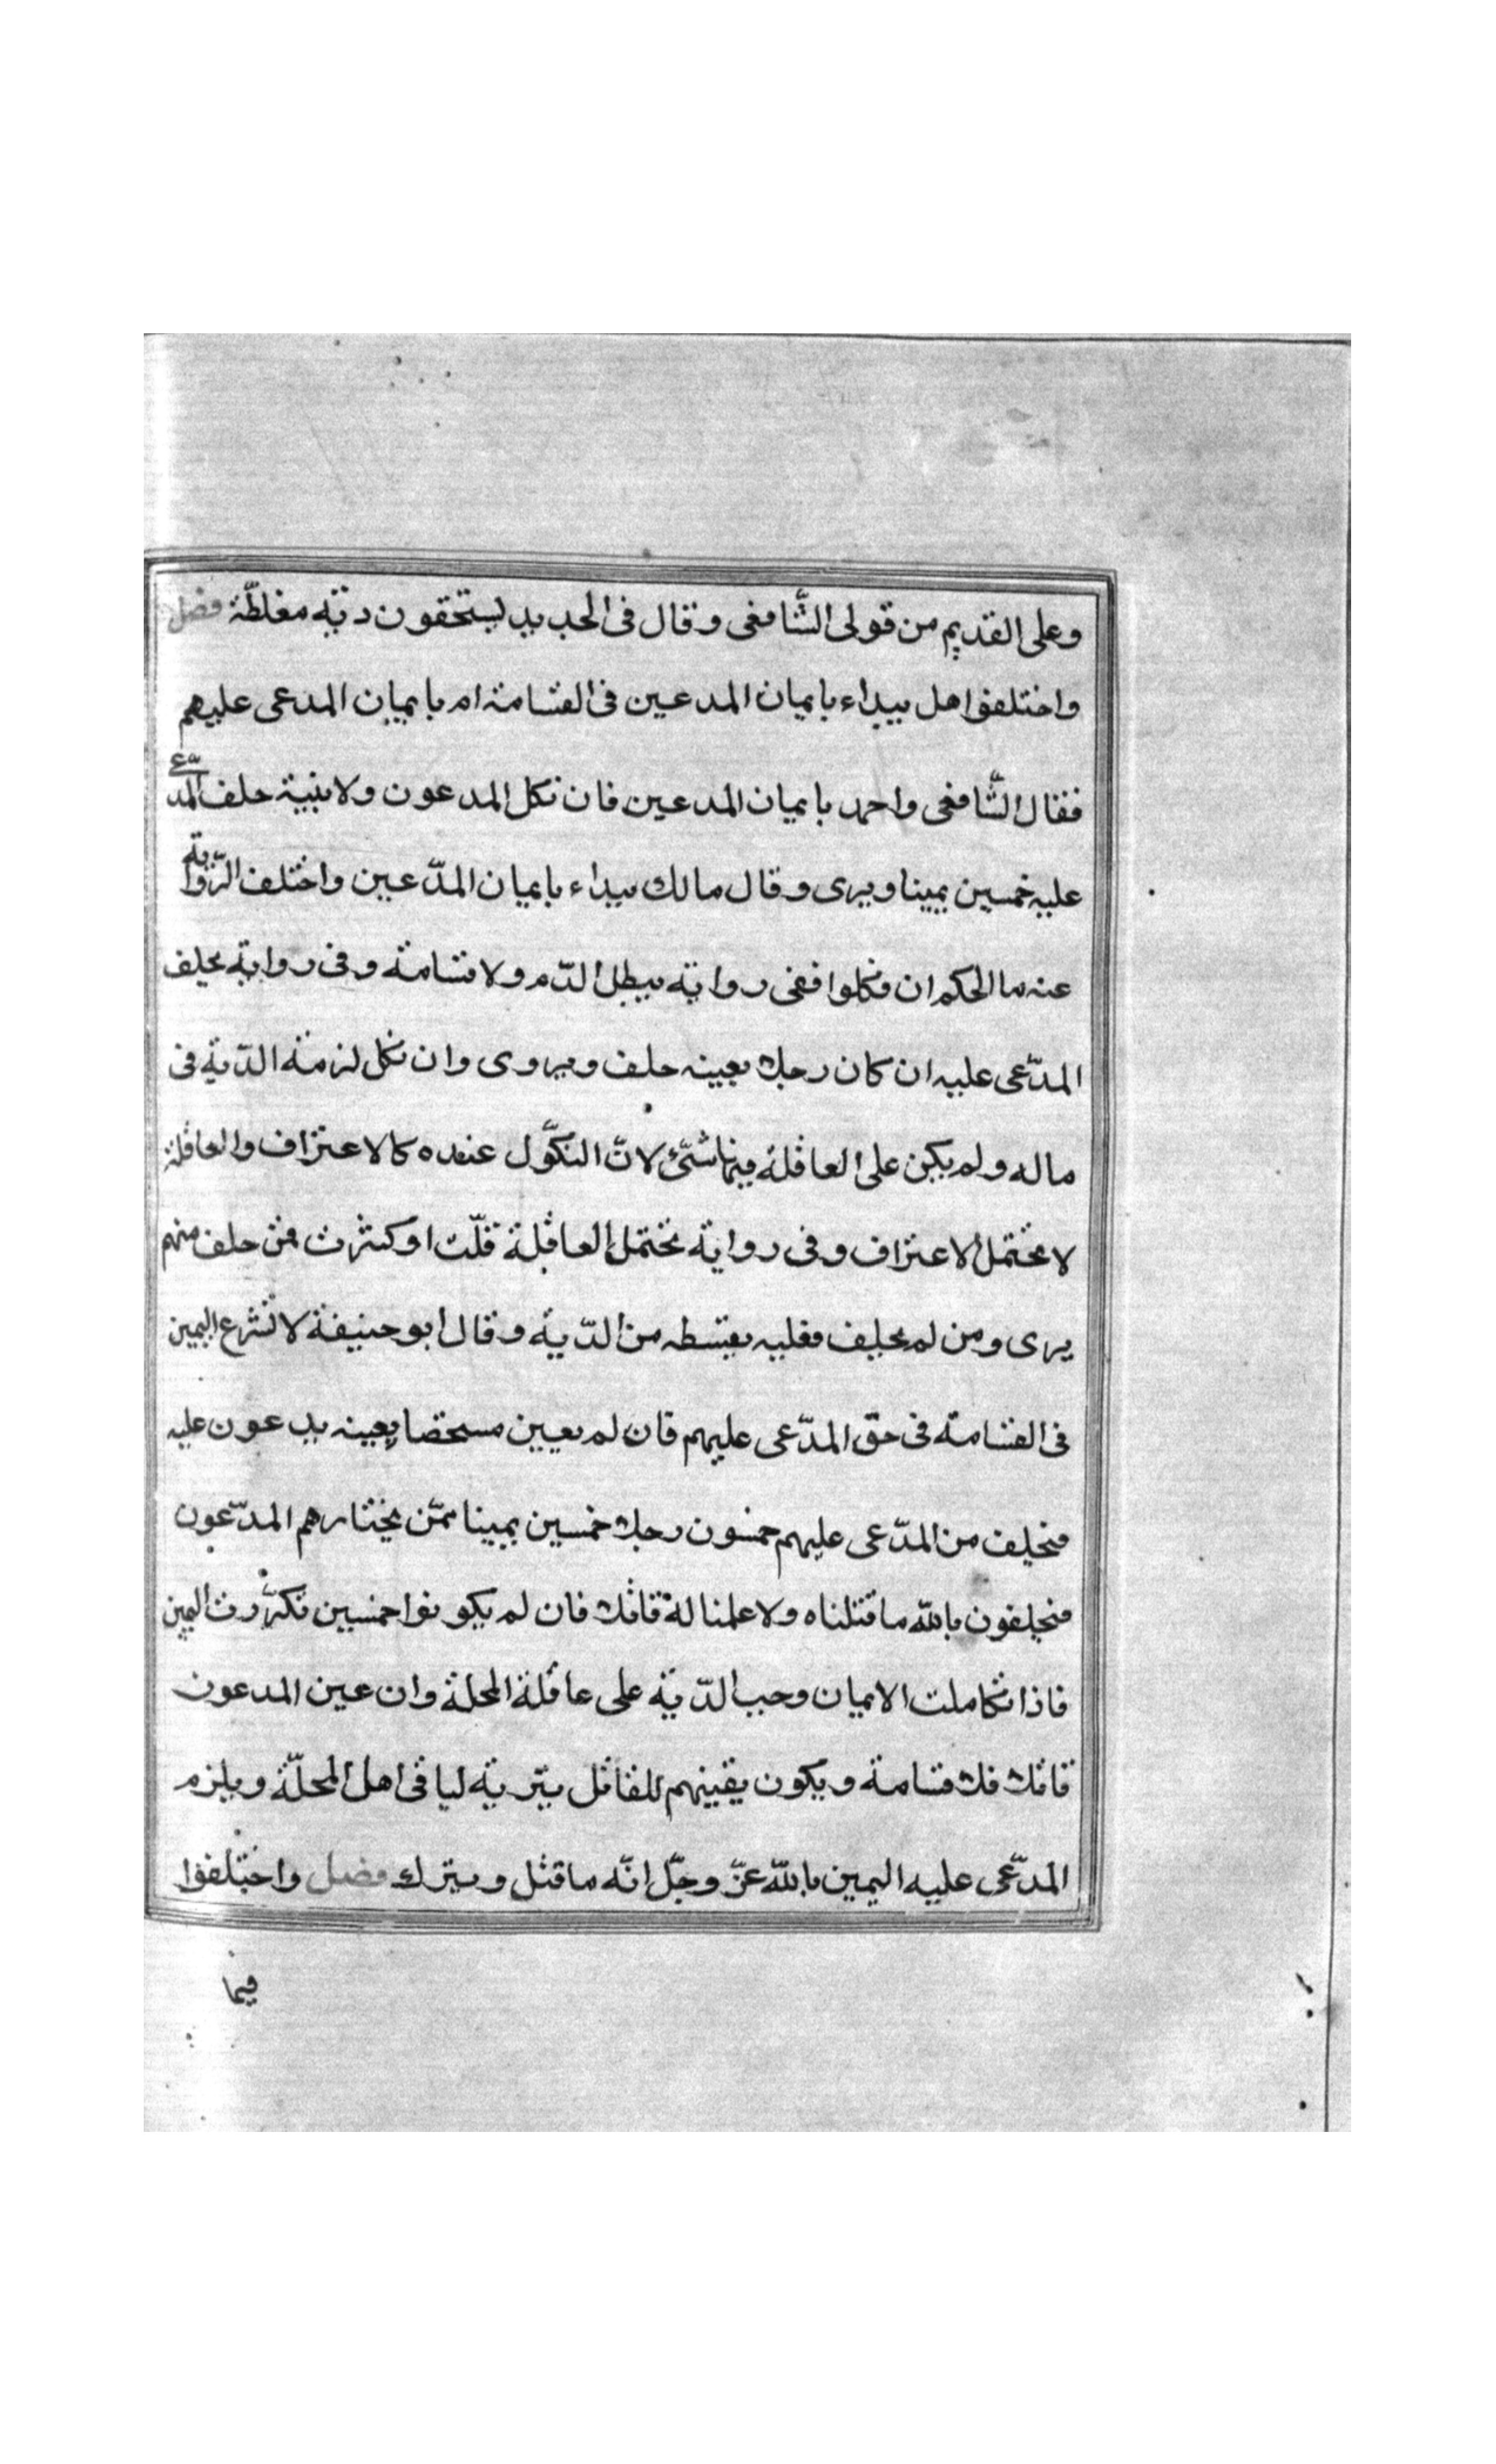 وعلى القديم من قولى الشّافعى وقال فى الجديد يستحقون دية مغلظّة فصل
واختلفوا هل يبداء بايمان المدعين فى القسامة ام بايمان المدعى عليهم
فقال الشّافعى واحمد بايمان المدعين فان نكل المدعون ولا بينة حلف المدّعى
عليه خمسين يمينا ويبرى وقال مالك يبداء بايمان المدّعين واختلف الرّواية
عنه ما الحكم ان نكلوا ففى رواية يبطل الدّم ولا قسامة وفى رواية يحلف
المدّعى عليه ان كان رجلا بعينه حلف ويروى وان نكل لزمة الديّة فى
ماله ولم يكن على العاقلة منها شئ لانّ النكّول عنده كالاعتراف والعاقلة
لا تحتمل الاعتراف وفى رواية تحتمل العاقلة قلّت او كثرت فمن حلف منهم
يبرى ومن لم يحلف فعليه بقسطه من الديّة وقال ابو حنيفة لا تشرع اليمين
فى القسامة فى حق المدّعى عليهم فان لم يعيين مسخصا بعينه يدعون عليه
فيحلف من المدّعى عليهم خمسون رجلا خمسين يمينا ممّن يختارهم المدّعون
فيحلفون بالله ما قتلناه ولا علمنا لة قاتلا فان لم يكونوا خمسين تكرّرت اليمين
فاذا تكاملت الايمان وجب الديّة على عاقلة المحلة وان عين المدعون
قاتلا فلا قسامة ويكون يقينهم للقاتل يتّرية لباقى اهل المحلّة ويلزم
المدّعى عليه اليمين بالله عزّ وجلّ انّه ما قتل ويترك فصل واختلفوا
فيما